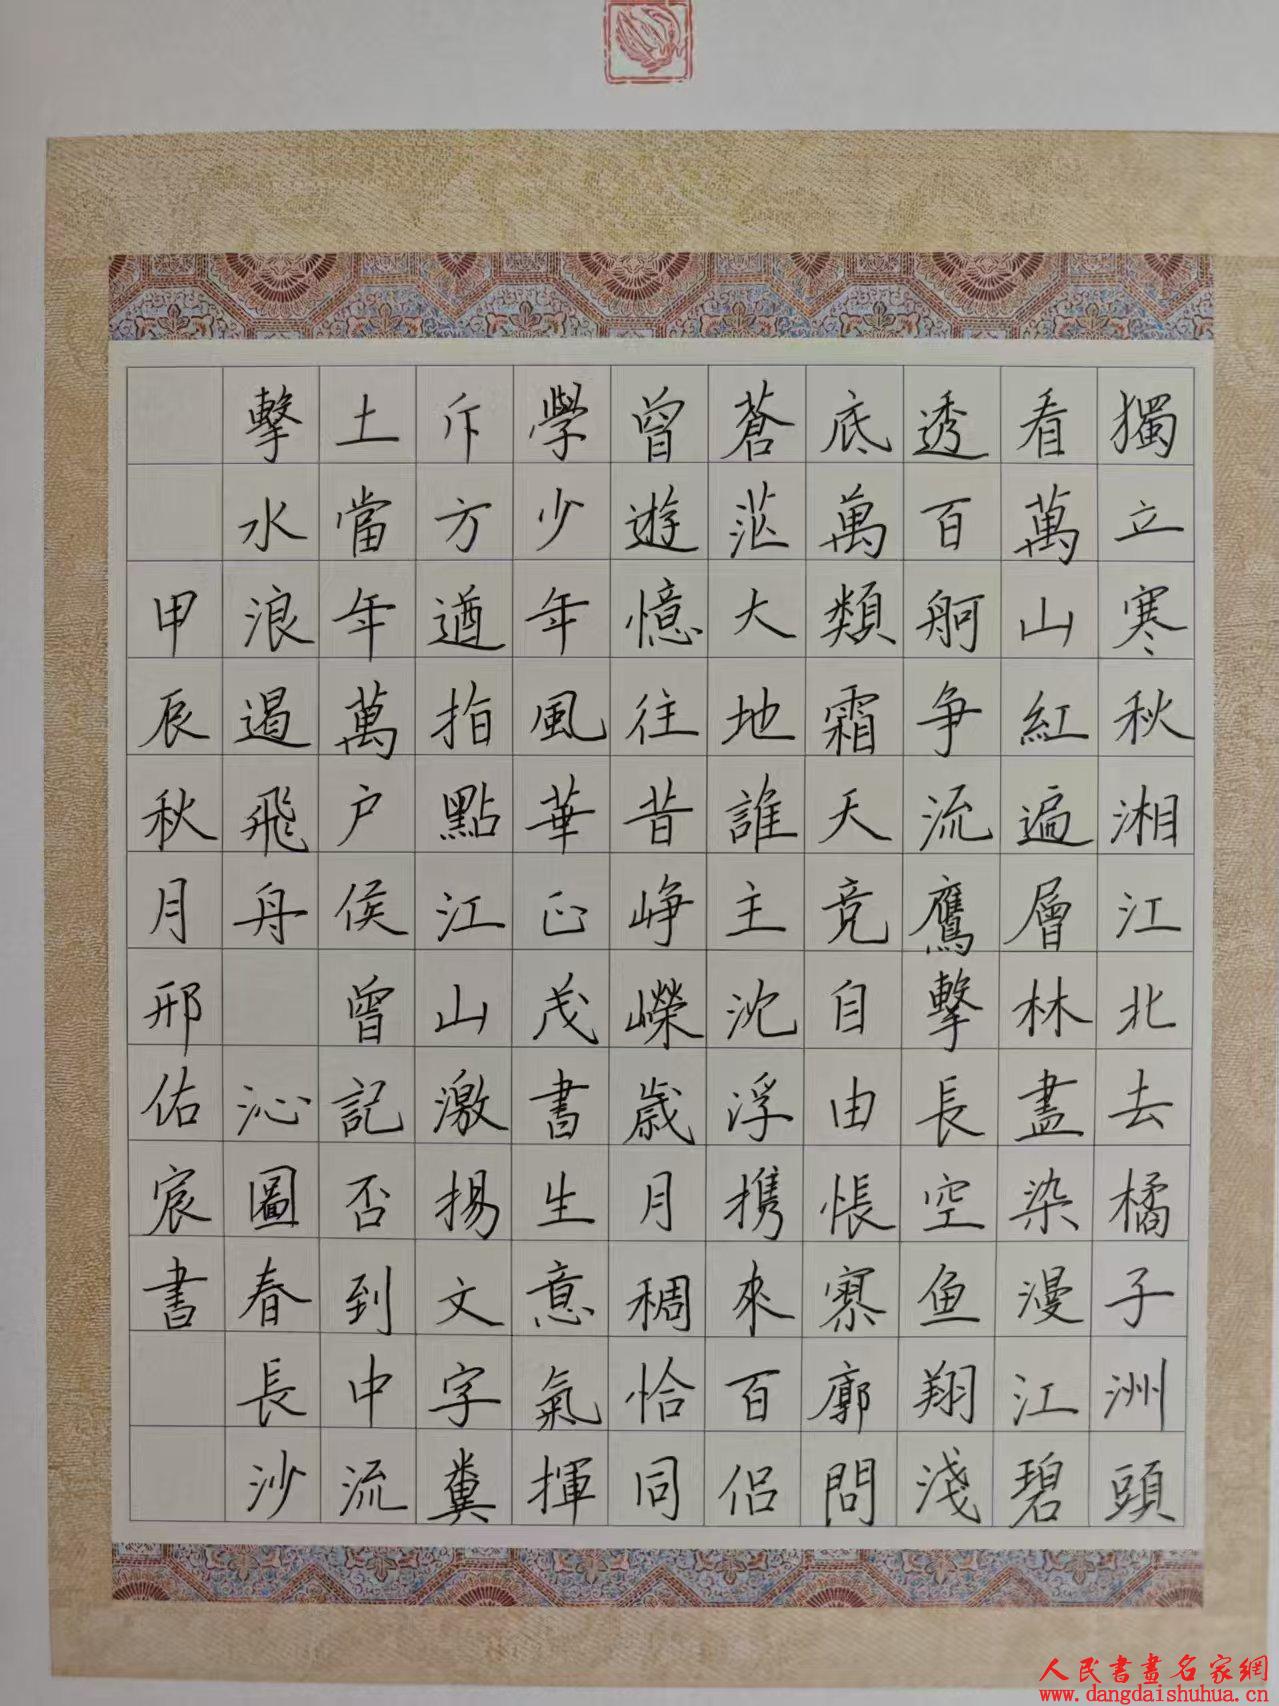 獨立寒秋湘江北去橘子洲頭
看萬山紅遍層林盡染漫江碧
透百舸争流鷹擊長空鱼翔淺
底萬類霜天竞自由悵寥廓問
蒼茫大地誰主沈浮携來百侣
曾遊憶往昔崢嶸歲月稠恰同
學少年風華正茂書生意氣揮
斥方遒指點江山激揚文字糞
土當年萬户侯曾記否到中流
擊水浪遏飛舟 沁園春長沙
甲辰秋月邢佑宸書
人民書畫名家網
www.dangdaishuhua.cn